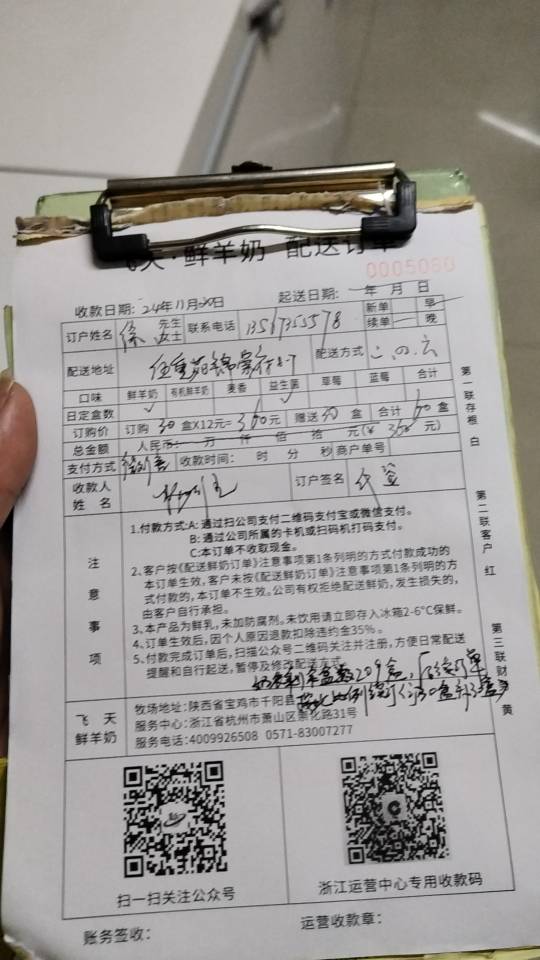 飞天·鲜羊奶 配送订单
0005060
收款日期: 24年11月20日 起送日期: 年 月 日
订户姓名 徐 先生 女士 联系电话 13567355578 新单 早 续单 晚
配送地址 配送方式 二.四.六
口味 鲜羊奶 有机鲜羊奶 麦香 益生菌 草莓 蓝莓 合计
日定盒数
订购价 订购 30 盒X12元= 360元 赠送 30 盒 合计 60 盒
总金额 人民币: 万 仟 佰 拾 元(¥ 360 元)
支付方式 收款时间: 时 分 秒 商户单号
收款人姓名 订户签名
注意事项
1.付款方式:A: 通过扫公司支付二维码支付宝或微信支付。
B: 通过公司所属的卡机或扫码机打码支付。
C:本订单不收取现金。
2、客户按《配送鲜奶订单》注意事项第1条列明的方式付款成功的
本订单生效，客户未按《配送鲜奶订单》注意事项第1条列明的方
式付款的，本订单不生效。公司有权拒绝配送鲜奶，发生损失的，
由客户自行承担。
3、本产品为鲜乳，未加防腐剂。未饮用请立即存入冰箱2-6°C保鲜。
4、订单生效后，因个人原因退款扣除违约金35%。
5、付款完成订单后，扫描公众号二维码关注并注册，方便日常配送
提醒和自行起送，暂停及修改配送方式
飞天鲜羊奶
牧场地址:陕西省宝鸡市千阳县
服务中心:浙江省杭州市萧山区崇化路31号
服务电话:4009926508 0571-83007277
扫一扫关注公众号 浙江运营中心专用收款码
账务签收: 运营收款章:
第一联存根 白
第二联客户 红
第三联财务 黄